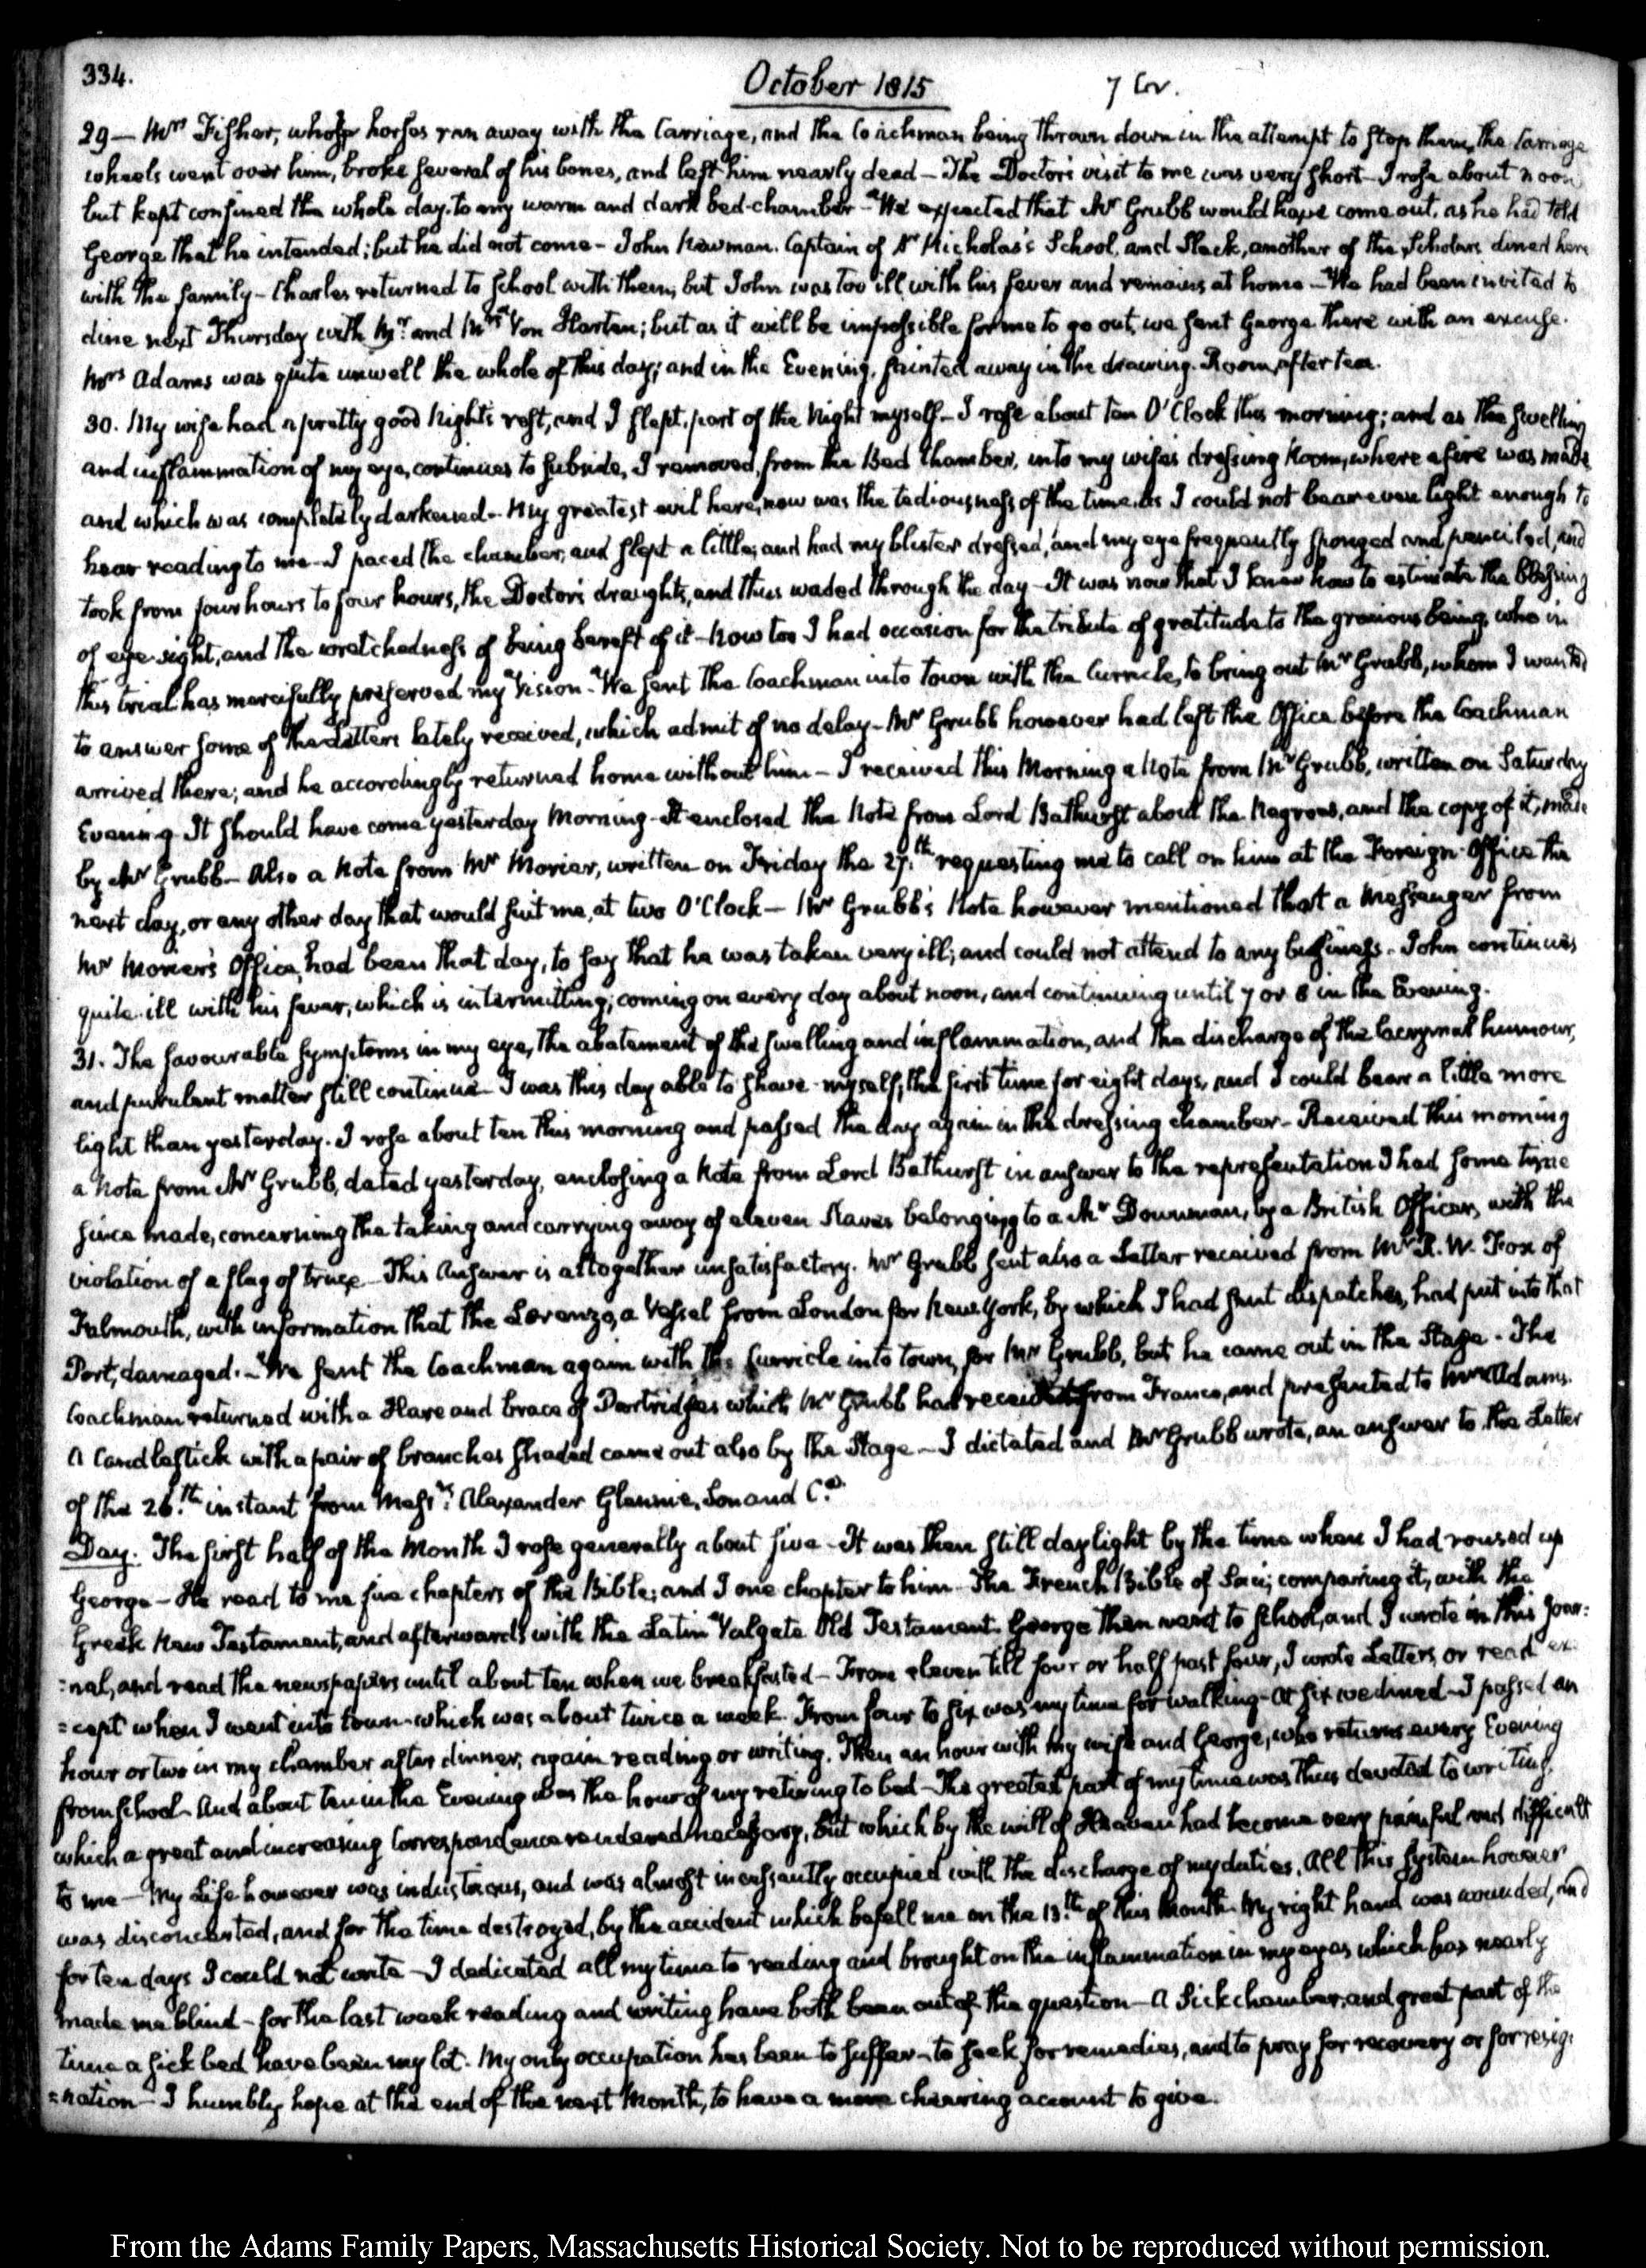 334.
October 1815
7 Cov.
29 — Mrs Fisher, whose horses ran away with the Carriage, and the Coachman being thrown down in the attempt to stop them, the Carriage
wheels went over him, broke several of his bones, and left him nearly dead — The Doctor's visit to me was very short — I rose about noon
but kept confined the whole day to my warm and dark bed-chamber — We expected that Mr Grubb would have come out, as he had told
George that he intended; but he did not come — John Newman. Captain of Dr Nicholas's School, and Slack, another of the Scholars dined here
with the family — Charles returned to school with them, but John was too ill with his fever and remains at home — We had been invited to
dine next Thursday with Mr. and Mrs Von Harten; but as it will be impossible for me to go out, we sent George there with an excuse.
Mrs Adams was quite unwell the whole of this day; and in the Evening, fainted away in the drawing-Room, after tea.
30. My wife had a pretty good Night's rest, and I slept, part of the Night myself — I rose about ten O'Clock this morning; and as the swelling
and inflammation of my eye, continues to subside, I removed, from the Bed Chamber, into my wife's dressing Room, where a fire was made
and which was completely darkened — My greatest evil here, now was the tediousness of the time. As I could not bear even light enough to
hear reading to me — I paced the chamber, and slept a little; and had my blister dressed, and my eye frequently sponged and pencilled, and
took from four hours to four hours, the Doctor's draughts, and thus waded through the day — It was now that I knew how to estimate the blessing
of eye-sight, and the wretchedness of being bereft of it — Now too I had occasion for the tribute of gratitude to the gracious being, who in
this trial has mercifully preserved my Vision — We sent the Coachman into town with the Curricle, to bring out Mr Grubb, whom I wanted
to answer some of the Letters lately received, which admit of no delay — Mr Grubb however had left the Office before the Coachman
arrived there; and he accordingly returned home without him — I received this Morning a Note from Mr Grubb, written on Saturday
Evening. It should have come yesterday Morning — It enclosed the Note from Lord Bathurst about the Negroes, and the copy of it, made
by Mr Grubb — Also a Note from Mr Morier, written on Friday the 27.th requesting me to call on him at the Foreign Office the
next day, or any other day that would suit me, at two O'Clock — Mr Grubb's Note however mentioned that a Messenger from
Mr Morier's Office, had been that day, to say that he was taken very ill; and could not attend to any business. John continues
quite ill with his fever, which is intermitting; coming on every day about noon, and continuing until 7 or 8 in the Evening.
31. The favourable symptoms in my eye, the abatement of the swelling and inflammation, and the discharge of the lacrymal humour,
and purulent matter still continue — I was this day able to shave myself, the first time for eight days, and I could bear a little more
light than yesterday. I rose about ten this morning and passed the day again in the dressing chamber — Received this morning
a Note from Mr Grubb, dated yesterday, enclosing a Note from Lord Bathurst in answer to the representation I had some time
since made, concerning the taking and carrying away of eleven Slaves belonging to a Mr Downman, by a British Officer, with the
violation of a flag of truce — This Answer is altogether unsatisfactory. Mr Grubb sent also a Letter received from Mr R. W. Fox of
Falmouth, with information that the Lorenzo, a Vessel from London for New York, by which I had sent dispatches, had put into that
Port, damaged. — We sent the Coachman again with the Curricle into town, for Mr Grubb, but he came out in the Stage — The
Coachman returned with a Hare and brace of Partridges which Mr Grubb had received from France, and presented to Mrs Adams.
A Candlestick with a pair of branches shaded came out also by the Stage — I dictated and Mr Grubb wrote, an answer to the Letter
of the 26.th instant from Messrs. Alexander Glennie, Son and Co.
Day. The first half of the Month I rose generally about five — It was then still daylight by the time when I had roused up
George — He read to me five chapters of the Bible; and I one chapter to him — The French Bible of Saci; comparing it, with the
Greek New Testament, and afterwards with the Latin Vulgate Old Testament. George then went to school, and I wrote in this Jour:
:nal, and read the newspapers until about ten when we breakfasted — From eleven till four or half past four, I wrote Letters, or read ex-
=cept when I went into town — which was about twice a week. From four to six was my time for walking — At six we dined — I passed an
hour or two in my chamber after dinner, again reading or writing. Then an hour with my wife and George, who returns every Evening
from school — And about ten in the Evening was the hour of my retiring to bed — The greatest part of my time was thus devoted to writing,
which a great and increasing Correspondence rendered necessary, but which by the will of Heaven had become very painful and difficult
to me — My Life however was industrious, and was almost incessantly occupied with the discharge of my duties. All this system however
was disconcerted, and for the time destroyed, by the accident which befell me on the 13.th of this Month. My right hand was wounded, and
for ten days I could not write — I dedicated all my time to reading and brought on the inflammation in my eyes which has nearly
made me blind — for the last week reading and writing have both been out of the question — A Sick chamber, and great part of the
time a sick bed have been my lot. My only occupation has been to suffer — to seek for remedies, and to pray for recovery or for resig:
=nation — I humbly hope at the end of the next Month, to have a more cheering account to give.
From the Adams Family Papers, Massachusetts Historical Society. Not to be reproduced without permission.